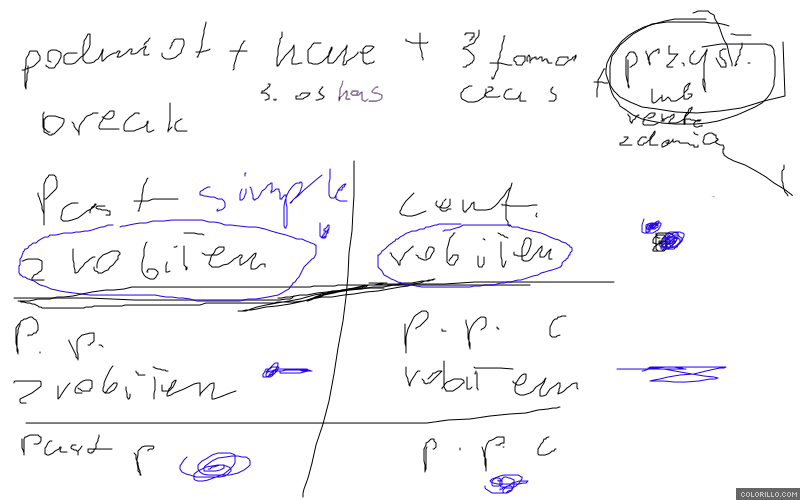 podmiot + have + 3 forma + przysł.
3. os has czas lub
break reszta
zdania
Past simple cont.
zrobiłem robiłem
P. p. P. p. c
zrobiłem robiłem
Past p p. p c
COLORILLO.COM